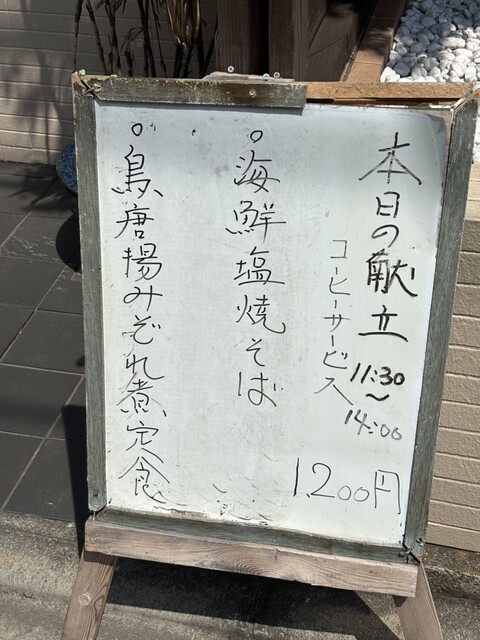 本日の献立
11:30
〜
14:00
コーヒーサービス
1.200円
○海鮮塩焼そば
○鳥唐揚みぞれ煮定食